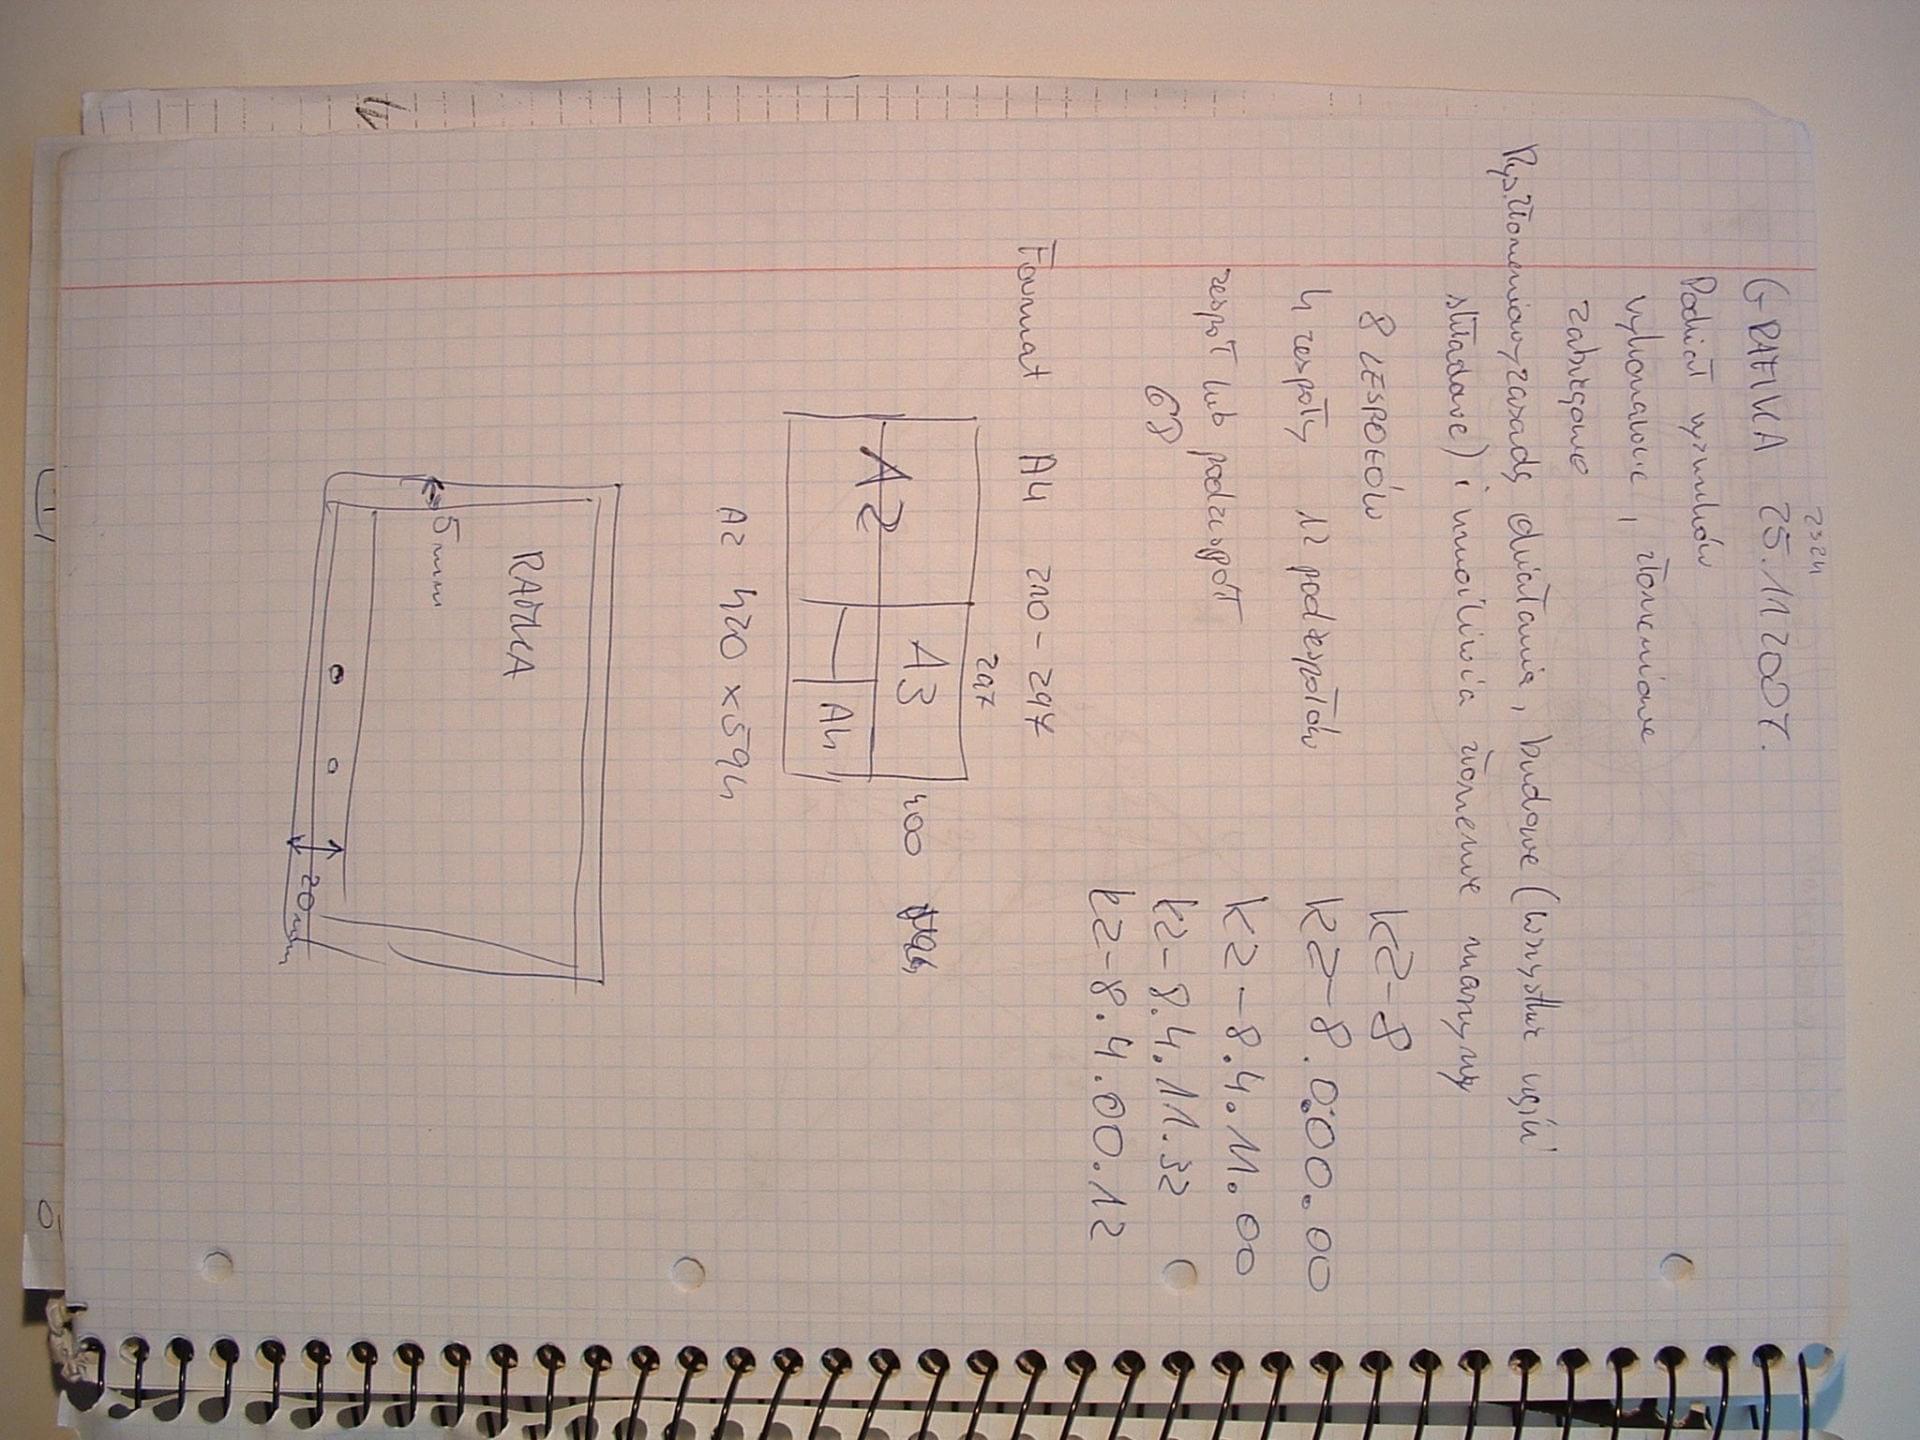 2324
GRAFIKA 25.11.2007.
Podział rysunków
wykonawcze, złożeniowe
zabiegowe
Rys. złożeniowy zasadę działania, budowę (wszystkie części
składowe) i umożliwia złożenie maszyny
8 ZESPOŁÓW
KZ-8
4 zespoły 12 podzespołów
KZ-8.0.00.00
zespół lub podzespół
KZ-8.4.11.00
68
KZ-8.4.11.32
KZ-8.4.00.12
Format A4 210-297
297
A3
400
A2
A4
A2 420 x 594
RAMKA
5mm
20mm